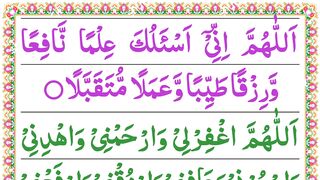 اَللّٰهُمَّ اِنِّیْۤ اَسْئَلُكَ عِلْمًا نَّافِعًا
وَّرِزْقًا طَیِّبًا وَّعَمَلًا مُّتَقَبَّلًا ○
اَللّٰهُمَّ اغْفِرْلِیْ وَارْحَمْنِیْ وَاهْدِنِیْ